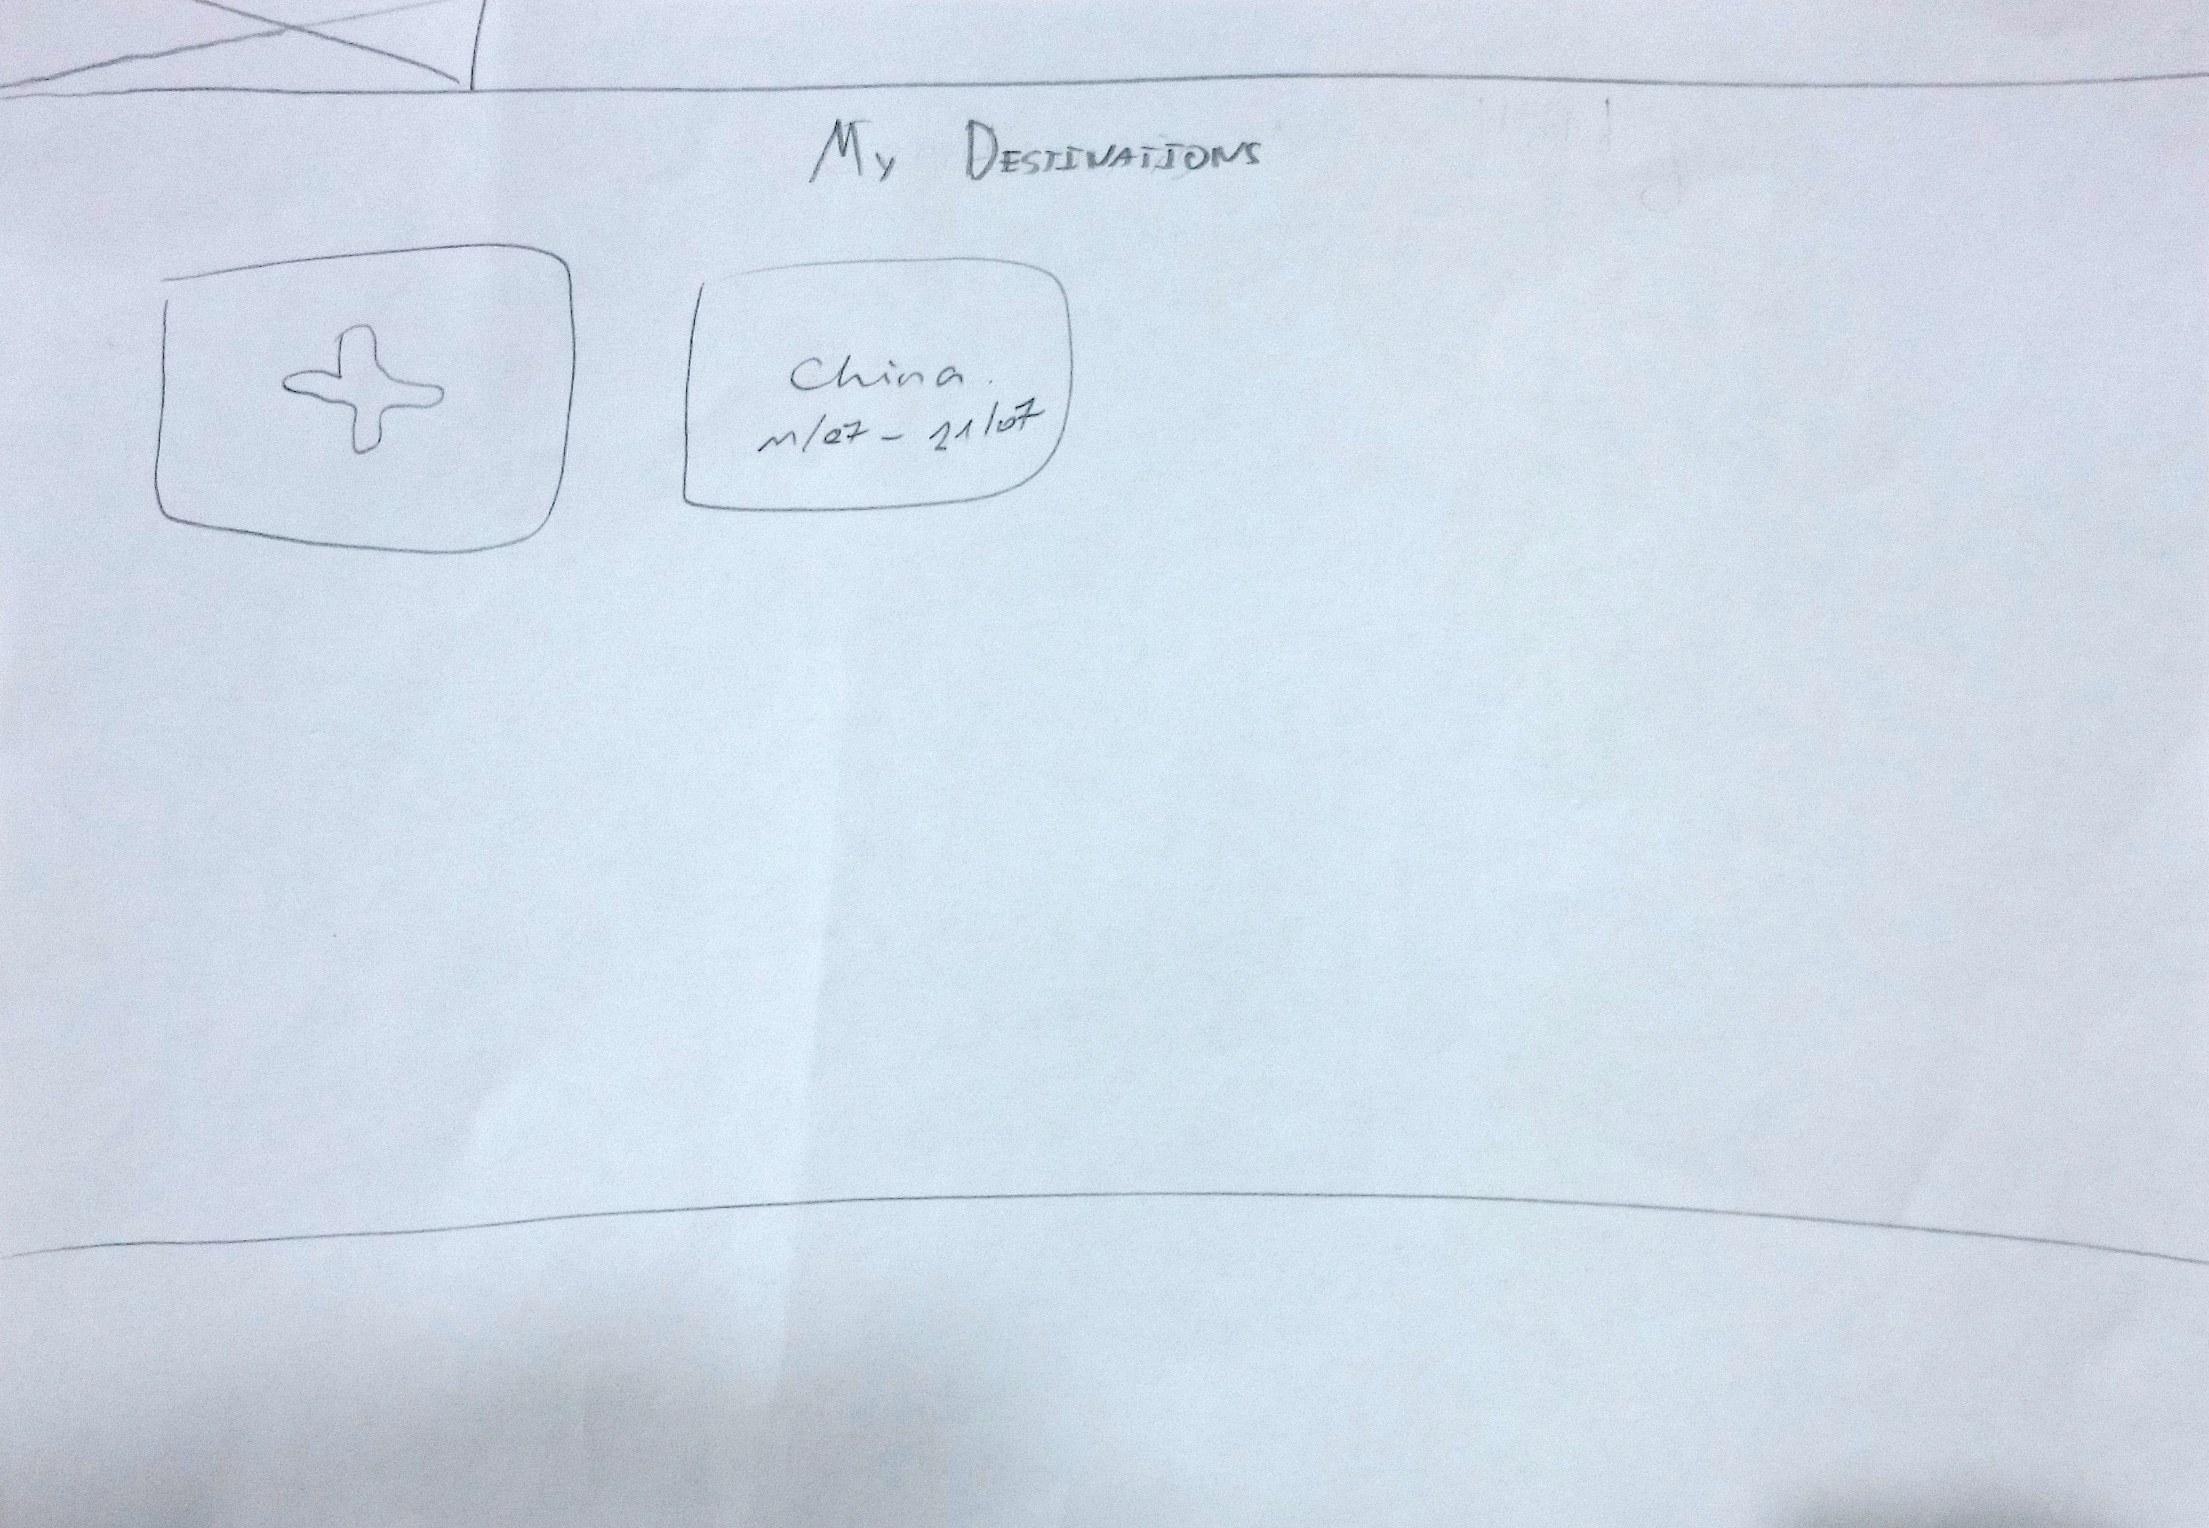 My Destinations
China.
11/07 - 21/07